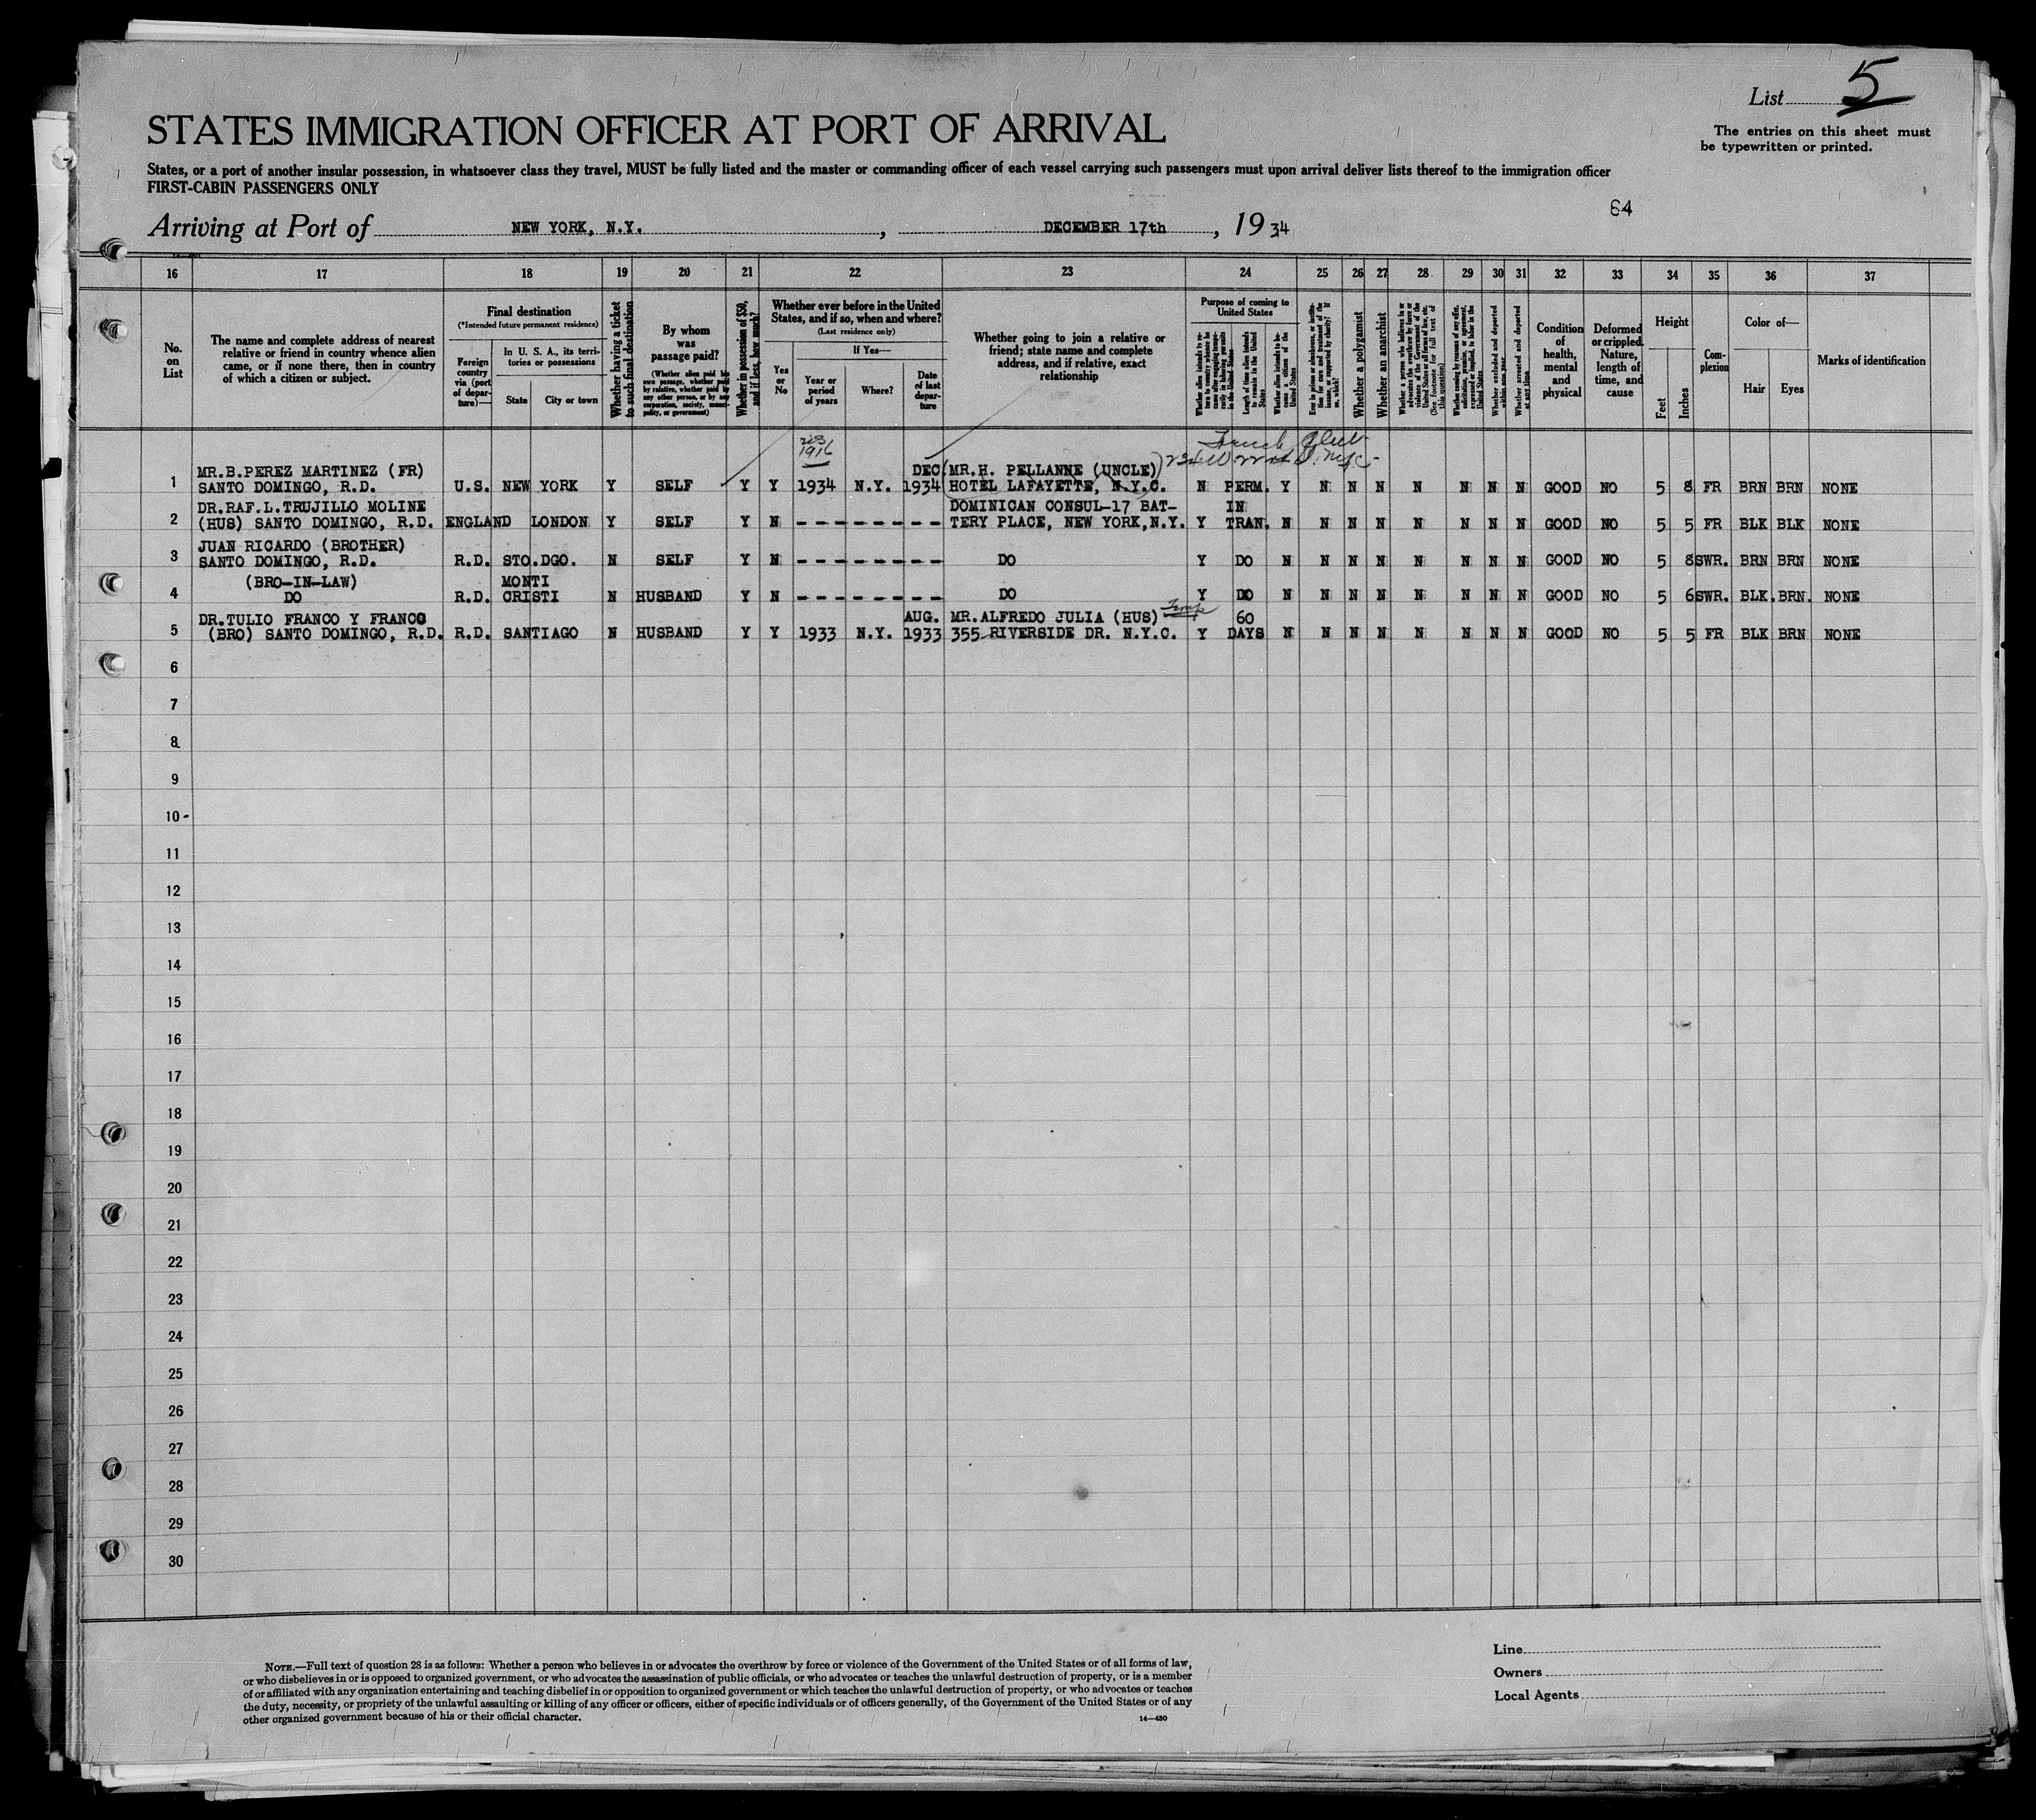 List 5
The entries on this sheet must
be typewritten or printed.
STATES IMMIGRATION OFFICER AT PORT OF ARRIVAL
States, or a port of another insular possession, in whatsoever class they travel, MUST be fully listed and the master or commanding officer of each vessel carrying such passengers must upon arrival deliver lists thereof to the immigration officer
FIRST-CABIN PASSENGERS ONLY
64
Arriving at Port of NEW YORK, N.Y. , DECEMBER 17th , 1934
16 17 18 19 20 21 22 23 24 25 26 27 28 29 30 31 32 33 34 35 36 37
No. on List
The name and complete address of nearest relative or friend in country whence alien came, or if none there, then in country of which a citizen or subject.
Final destination
(*Intended future permanent residence)
Foreign country via (port of departure)—
In U. S. A., its territories or possessions
State
City or town
Whether having a ticket to such final destination
By whom was passage paid?
(Whether alien paid his own passage, whether paid by relative, whether paid by any other person, or by any corporation, society, municipality, or government)
Whether in possession of $50, and if less, how much?
Whether ever before in the United States, and if so, when and where?
(Last residence only)
Yes or No
If Yes—
Year or period of years
Where?
Date of last departure
Whether going to join a relative or friend; state name and complete address, and if relative, exact relationship
Purpose of coming to United States
Length of time alien intends to remain in the United States
Whether alien intends to become a citizen of the United States
Whether a polygamist
Whether an anarchist
Whether excluded and deported within one year
Whether arrested and deported at any time
Condition of health, mental and physical
Deformed or crippled. Nature, length of time, and cause
Height
Feet
Inches
Complexion
Color of—
Hair
Eyes
Marks of identification
1916
MR.B.PEREZ MARTINEZ (FR) DEC MR.H. PELLANNE (UNCLE)
1 SANTO DOMINGO, R.D. U.S. NEW YORK Y SELF Y Y 1934 N.Y. 1934 HOTEL LAFAYETTE, N.Y.C. N PERM. Y N N N N N N N GOOD NO 5 8 FR BRN BRN NONE
DR.RAF.L.TRUJILLO MOLINE DOMINICAN CONSUL-17 BAT- IN
2 (HUS) SANTO DOMINGO, R.D. ENGLAND LONDON Y SELF Y N - - - - - - - - TERY PLACE, NEW YORK,N.Y. Y TRAN. N N N N N N N N GOOD NO 5 5 FR BLK BLK NONE
JUAN RICARDO (BROTHER)
3 SANTO DOMINGO, R.D. R.D. STO.DGO. N SELF Y N - - - - - - - - DO Y DO N N N N N N N N GOOD NO 5 8 SWR. BRN BRN NONE
(BRO-IN-LAW) MONTI
4 DO R.D. CRISTI N HUSBAND Y N - - - - - - - - DO Y DO N N N N N N N N GOOD NO 5 6 SWR. BLK. BRN. NONE
DR.TULIO FRANCO Y FRANCO AUG. MR.ALFREDO JULIA (HUS) 60
5 (BRO) SANTO DOMINGO, R.D. R.D. SANTIAGO N HUSBAND Y Y 1933 N.Y. 1933 355 RIVERSIDE DR. N.Y.C. Y DAYS N N N N N N N N GOOD NO 5 5 FR BLK BRN NONE
6
7
8
9
10
11
12
13
14
15
16
17
18
19
20
21
22
23
24
25
26
27
28
29
30
NOTE.—Full text of question 28 is as follows: Whether a person who believes in or advocates the overthrow by force or violence of the Government of the United States or of all forms of law,
or who disbelieves in or is opposed to organized government, or who advocates the assassination of public officials, or who advocates or teaches the unlawful destruction of property, or is a member
of or affiliated with any organization entertaining and teaching disbelief in or opposition to organized government or which teaches the unlawful destruction of property, or who advocates or teaches
the duty, necessity, or propriety of the unlawful assaulting or killing of any officer or officers, either of specific individuals or of officers generally, of the Government of the United States or of any
other organized government because of his or their official character.
14—430
Line
Owners
Local Agents